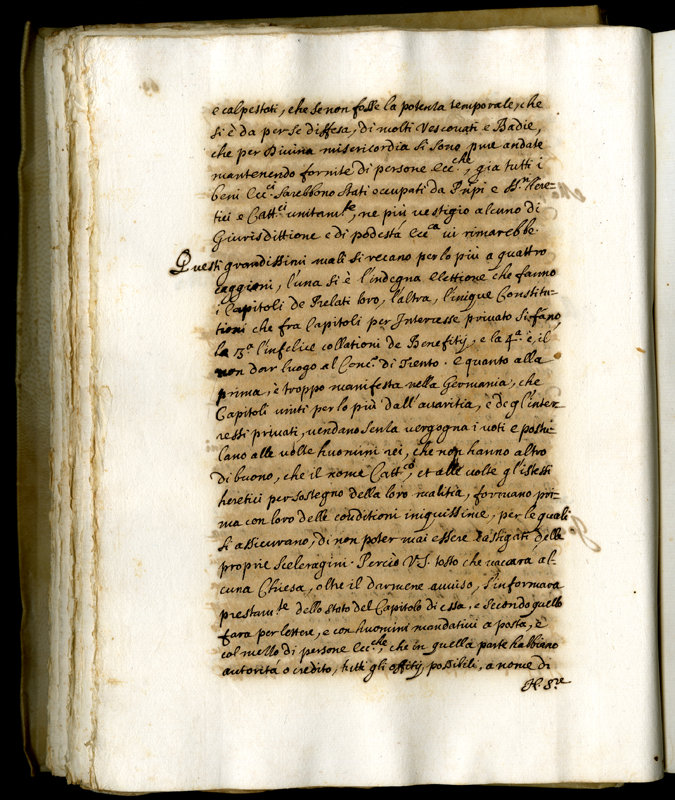 e calpestati, che se non fosse la potenza temporale, che
si è da per se diffesa, di molti Vescovati e Badie,
che per Divina misericordia si sono pur andate
mantenendo fornite di persone Ecc.che, gia tutti i
beni Ecc.ci sarebbono stati occupati da Pnpi e Here=
tici e Catt.ci unitam.te, ne più vestigio alcuno di
Giurisdittione e di podestà Ecc.ca vi rimarebbe.
Questi grandissimi mali si recano per lo più a quattro
caggioni, l'una si è l'indegna elettione che fanno
i Capitoli de Prelati loro, l'altra, l'inique Constitu-
tioni che fra Capitoli per Interesse privato si fano,
la 3.a l'infelice collationi de Benefitij, e la 4.a è, il
non dar luogo al Conc.o di Trento. e quanto alla
prima, è troppo manifesta nella Germania, che
Capitoli vinti per lo più dall'avaritia, e degl'inter=
ressi privati, vendano senza vergogna i voti e postu-
lano alle volte huomini rei, che non hanno altro
di buono, che il nome Catt.co, et alle volte gl'istessi
heretici per sostegno della loro malitia, formano pri=
ma con loro delle conditioni iniquissime, per le quali
si assicurano, di non poter mai essere castigati delle
proprie sceleragini. Perciò V.S. tosto che vaccarà al-
cuna Chiesa, oltre il darmene avviso, s'informarà
prestam.te dello stato del Capitolo di essa. e secondo quello
farà per lettere, e con huomini mandativi a posta, e
col mezzo di persone Ecc.che, che in quella parte habbiano
autorità o credito, tutti gli offitij possibili, a nome di
N. S.re